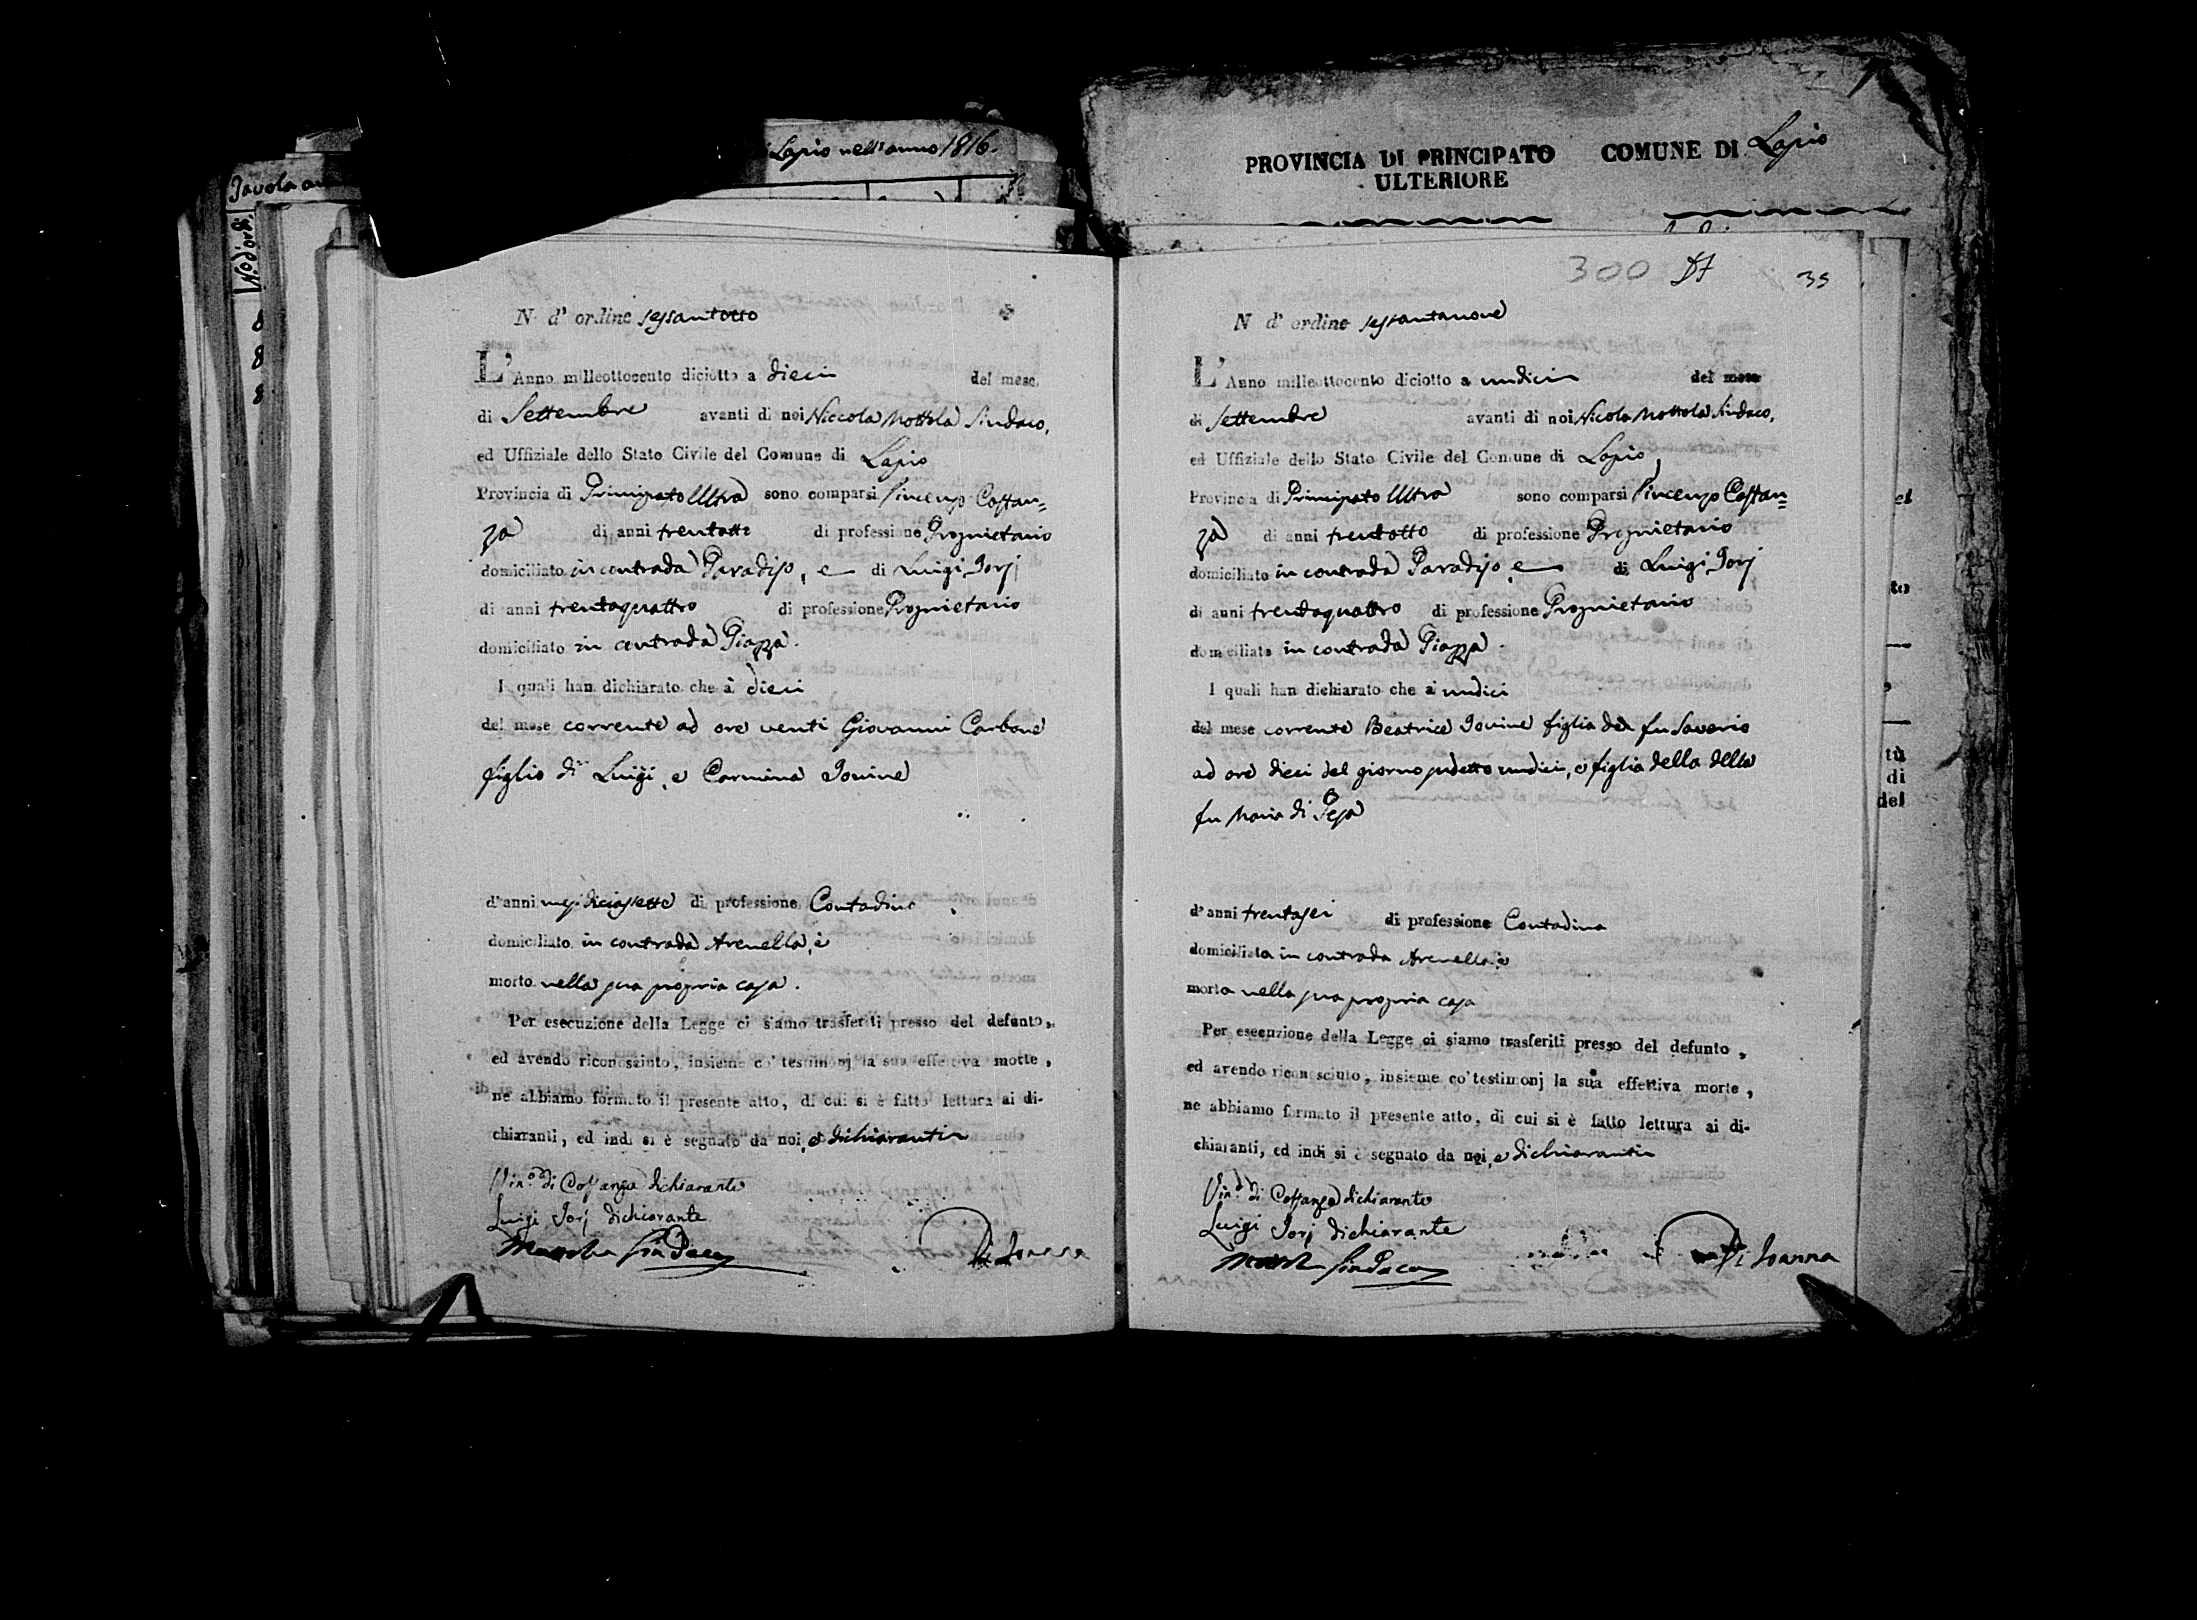 Tavola an
N.o d'ordi.
8
8
8
Lapio nell'anno 1816.
PROVINCIA DI PRINCIPATO COMUNE DI Lapio
ULTERIORE
N. d' ordine sessantotto
L'Anno milleottocento diciotto a dieci del mese
di Settembre avanti di noi Niccola Mottola Sindaco,
ed Uffiziale dello Stato Civile del Comune di Lapio
Provincia di Principato Ultra sono comparsi Vincenzo Costan=
za di anni trentotto di professione Proprietario
domiciliato in contrada Paradiso, e di Luigi Iorj
di anni trentaquattro di professione Proprietario
domiciliato in contrada Piazza.
I quali han dichiarato che à dieci
del mese corrente ad ore venti Giovanni Carbone
figlio di Luigi, e Carmina Iovine
d'anni mesi diciassette di professione Contadino
domiciliato in contrada Arenella, è
morto nella sua propria casa.
Per esecuzione della Legge ci siamo trasferiti presso del defunto,
ed avendo riconosciuto, insieme co' testimonj la sua effettiva morte,
ne abbiamo formato il presente atto, di cui si è fatto lettura ai di-
chiaranti, ed indi si è segnato da noi, e dichiaranti
Vin.o di Costanza dichiarante
Luigi Iorj dichiarante
Mottola Sindaco
Di Ioanna
300 35
N d' ordine sessantanove
L'Anno milleottocento diciotto a undici del mese
di Settembre avanti di noi Nicola Mottola Sindaco,
ed Uffiziale dello Stato Civile del Comune di Lapio,
Provincia di Principato Ultra sono comparsi Vincenzo Costan=
za di anni trentotto di professione Proprietario
domiciliato in contrada Paradiso, e di Luigi Iorj
di anni trentaquattro di professione Proprietario
domiciliato in contrada Piazza.
I quali han dichiarato che a undici
del mese corrente Beatrice Iovine figlia del fu Saverio
ad ore dieci del giorno sudetto undici, e figlia della della
fu Maria di Pesa
d'anni trentasei di professione Contadina
domiciliata in contrada Arenella, è
morta nella sua propria casa
Per esecuzione della Legge ci siamo trasferiti presso del defunto,
ed avendo riconosciuto, insieme co' testimonj la sua effettiva morte,
ne abbiamo formato il presente atto, di cui si è fatto lettura ai di-
chiaranti, ed indi si è segnato da noi, e dichiaranti
Vin.o di Costanza dichiarante
Luigi Iorj dichiarante
Mottola Sindaco
Di Ioanna
el
to
tù
di
del